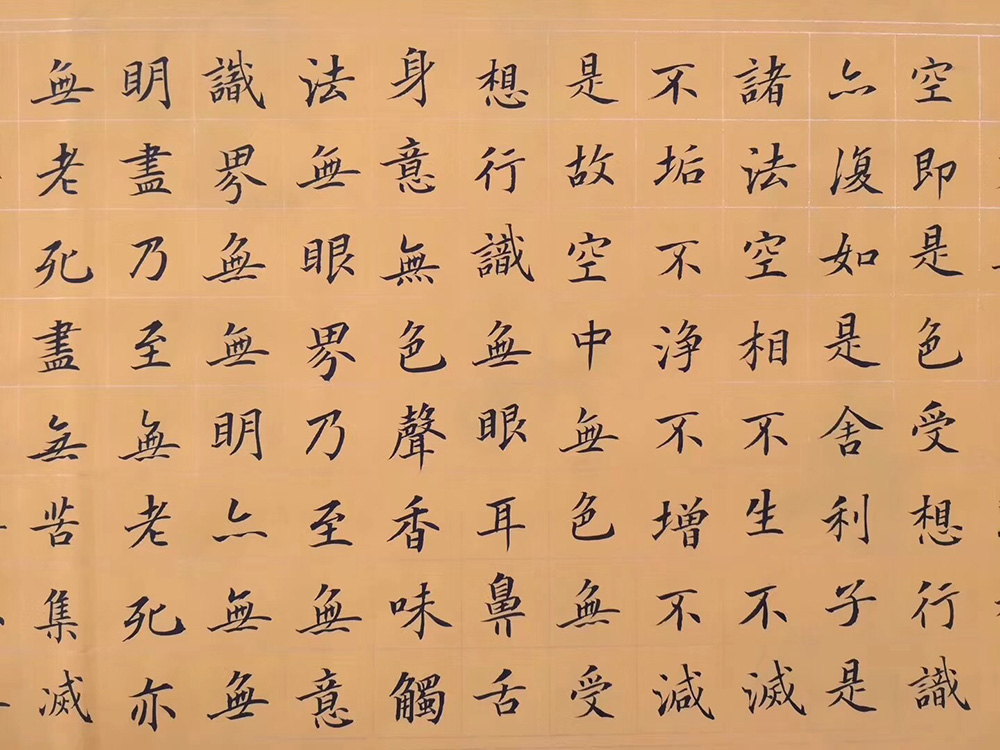 空即是色受想行識
亦復如是舍利子是
諸法空相不生不滅
不垢不淨不增不減
是故空中無色無受
想行識無眼耳鼻舌
身意無色聲香味觸
法無眼界乃至無意
識界無無明亦無無
明盡乃至無老死亦
無老死盡無苦集滅